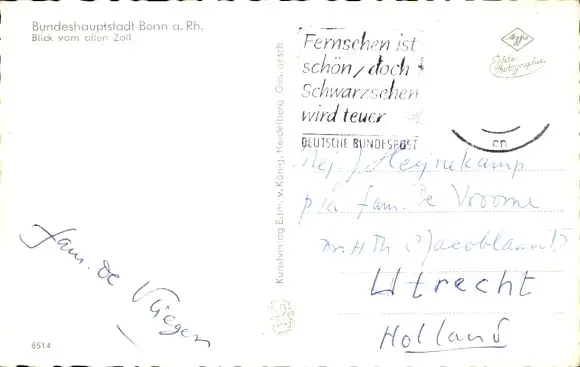 Bundeshauptstadt Bonn a. Rh.
Blick vom alten Zoll
Fernsehen ist
schön, doch
Schwarzsehen
wird teuer
DEUTSCHE BUNDESPOST
Agfa
Echte
Photographie
Kunstverlag Edm. v. König, Heidelberg Ges. gesch.
Mej. J Heijnekamp
p/a fam. De Vroome
Mr. H Th s'Jacoblaan 15
Utrecht
Holland
fam. de Vlieger
6514